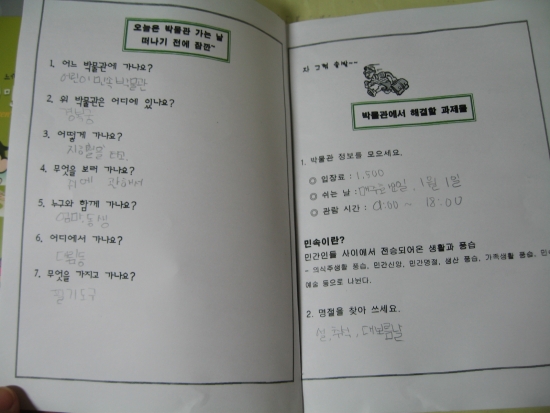 오늘은 박물관 가는 날
떠나기 전에 잠깐~
1. 어느 박물관에 가나요?
어린이 민속박물관
2. 위 박물관은 어디에 있나요?
경복궁
3. 어떻게 가나요?
지하철을 타고.
4. 무엇을 보러 가나요?
5. 누구와 함께 가나요?
엄마, 동생
6. 어디에서 가나요?
7. 무엇을 가지고 가나요?
필기도구
자 그럼 출발~~
박물관에서 해결할 과제들
1. 박물관 정보를 모으세요.
◎ 입장료 : 1,500
◎ 쉬는 날 : 매주 화요일, 1월 1일
◎ 관람 시간 : 9:00 ~ 18:00
민속이란?
민간인들 사이에서 전승되어온 생활과 풍습
- 의식주생활 풍습, 민간신앙, 민간명절, 생산 풍습, 가족생활 풍습, 민속
예술 등으로 나뉜다.
2. 명절을 찾아 쓰세요.
설, 추석, 대보름날